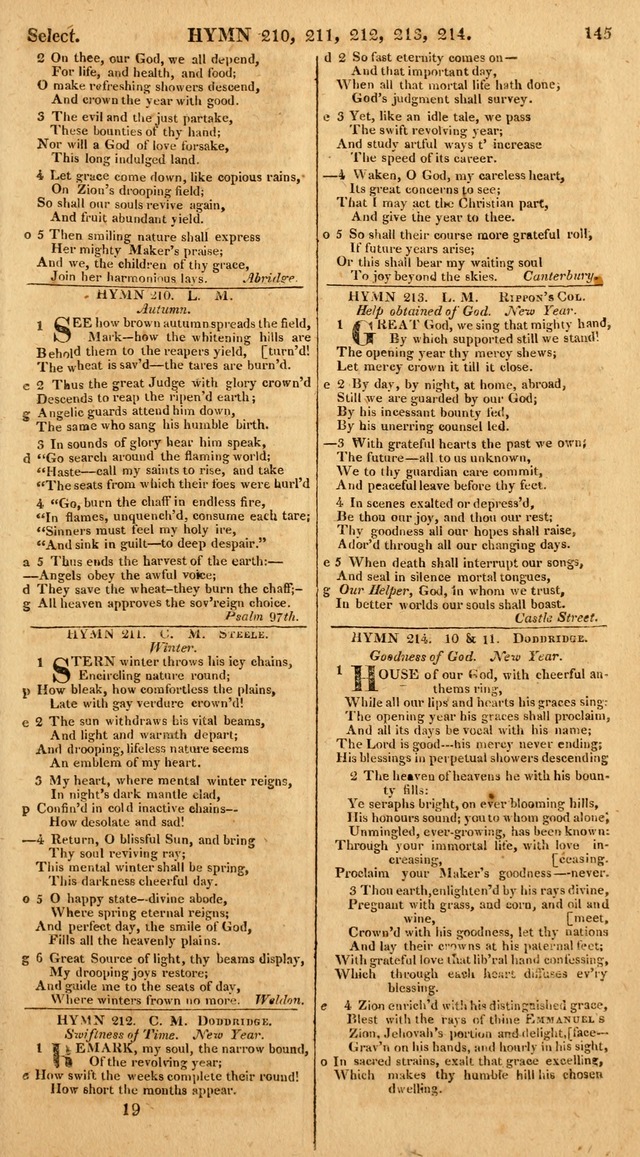 Select. HYMN 210, 211, 212, 213, 214. 145
2 On thee, our God, we all depend,
For life, and health, and food;
O make refreshing showers descend,
And crown the year with good.
3 The evil and the just partake,
These bounties of thy hand;
Nor will a God of love forsake,
This long indulged land.
4 Let grace come down, like copious rains,
On Zion's drooping field;
So shall our souls revive again,
And fruit abundant yield.
o 5 Then smiling nature shall express
Her mighty Maker's praise;
And we, the children of thy grace,
Join her harmonious lays. Abridge.
HYMN 210. L. M.
Autumn.
1 SEE how brown autumn spreads the field,
Mark—how the whitening hills are
Behold them to the reapers yield, [turn'd!
The wheat is sav'd—the tares are burn'd.
e 2 Thus the great Judge with glory crown'd
Descends to reap the ripen'd earth;
g Angelic guards attend him down,
The same who sang his humble birth.
3 In sounds of glory hear him speak,
d "Go search around the flaming world;
"Haste—call my saints to rise, and take
"The seats from which their foes were hurl'd
4 "Go, burn the chaff in endless fire,
"In flames, unquench'd, consume each tare;
"Sinners must feel my holy ire,
"And sink in guilt—to deep despair."
a 5 Thus ends the harvest of the earth:—
—Angels obey the awful voice;
d They save the wheat—they burn the chaff;—
g All heaven approves the sov'reign choice.
Psalm 97th.
HYMN 211. C. M. STEELE.
Winter.
1 STERN winter throws his icy chains,
Encircling nature round;
p How bleak, how comfortless the plains,
Late with gay verdure crown'd!
e 2 The sun withdraws his vital beams,
And light and warmth depart;
And drooping, lifeless nature seems
An emblem of my heart.
3 My heart, where mental winter reigns,
In night's dark mantle clad,
p Confin'd in cold inactive chains—
How desolate and sad!
—4 Return, O blissful Sun, and bring
Thy soul reviving ray;
This mental winter shall be spring,
This darkness cheerful day.
o 5 O happy state—divine abode,
Where spring eternal reigns;
And perfect day, the smile of God,
Fills all the heavenly plains.
g 6 Great Source of light, thy beams display,
My drooping joys restore;
And guide me to the seats of day,
Where winters frown no more. Weldon.
HYMN 212. C. M. DODDRIDGE.
Swiftness of Time. New Year.
1 REMARK, my soul, the narrow bound,
Of the revolving year;
e How swift the weeks complete their round!
How short the months appear.
19
d 2 So fast eternity comes on—
And that important day,
When all that mortal life hath done,
God's judgment shall survey.
e 3 Yet, like an idle tale, we pass
The swift revolving year;
And study artful ways t' increase
The speed of its career.
—4 Waken, O God, my careless heart,
Its great concerns to see;
That I may act the Christian part,
And give the year to thee.
o 5 So shall their course more grateful roll,
If future years arise;
Or this shall bear my waiting soul
To joy beyond the skies. Canterbury.
HYMN 213. L. M. RIPPON'S COL.
Help obtained of God. New Year.
1 GREAT God, we sing that mighty hand,
By which supported still we stand!
The opening year thy mercy shews;
Let mercy crown it till it close.
e 2 By day, by night, at home, abroad,
Still we are guarded by our God;
By his incessant bounty fed,
By his unerring counsel led.
—3 With grateful hearts the past we own;
The future—all to us unknown,
We to thy guardian care commit,
And peaceful leave before thy feet.
4 In scenes exalted or depress'd,
Be thou our joy, and thou our rest;
Thy goodness all our hopes shall raise,
Ador'd through all our changing days.
e 5 When death shall interrupt our songs,
And seal in silence mortal tongues,
g Our Helper, God, in whom we trust,
In better worlds our souls shall boast.
Castle Street.
HYMN 214. 10 & 11. DODDRIDGE.
Goodness of God. New Year.
1 HOUSE of our God, with cheerful an-
thems ring,
While all our lips and hearts his graces sing:
The opening year his graces shall proclaim,
And all its days be vocal with his name;
The Lord is good—his mercy never ending;
His blessings in perpetual showers descending
2 The heaven of heavens he with his boun-
ty fills:
Ye seraphs bright, on ever blooming hills,
His honours sound; you to whom good alone,
Unmingled, ever-growing, has been known:
Through your immortal life, with love in-
creasing, [ceasing.
Proclaim your Maker's goodness—never.
3 Thou earth, enlighten'd by his rays divine,
Pregnant with grass, and corn, and oil and
wine, [meet,
Crown'd with his goodness, let thy nations
And lay their crowns at his paternal feet;
With grateful love that lib'ral hand confessing,
Which through each heart diffuses ev'ry
blessing.
e 4 Zion enrich'd with his distinguished grace,
Blest with the rays of thine EMMANUEL'S
Zion, Jehovah's portion and delight, [face—
Grav'n on his hands, and hourly in his sight,
o In sacred strains, exalt that grace excelling,
Which makes thy humble hill his chosen
dwelling.